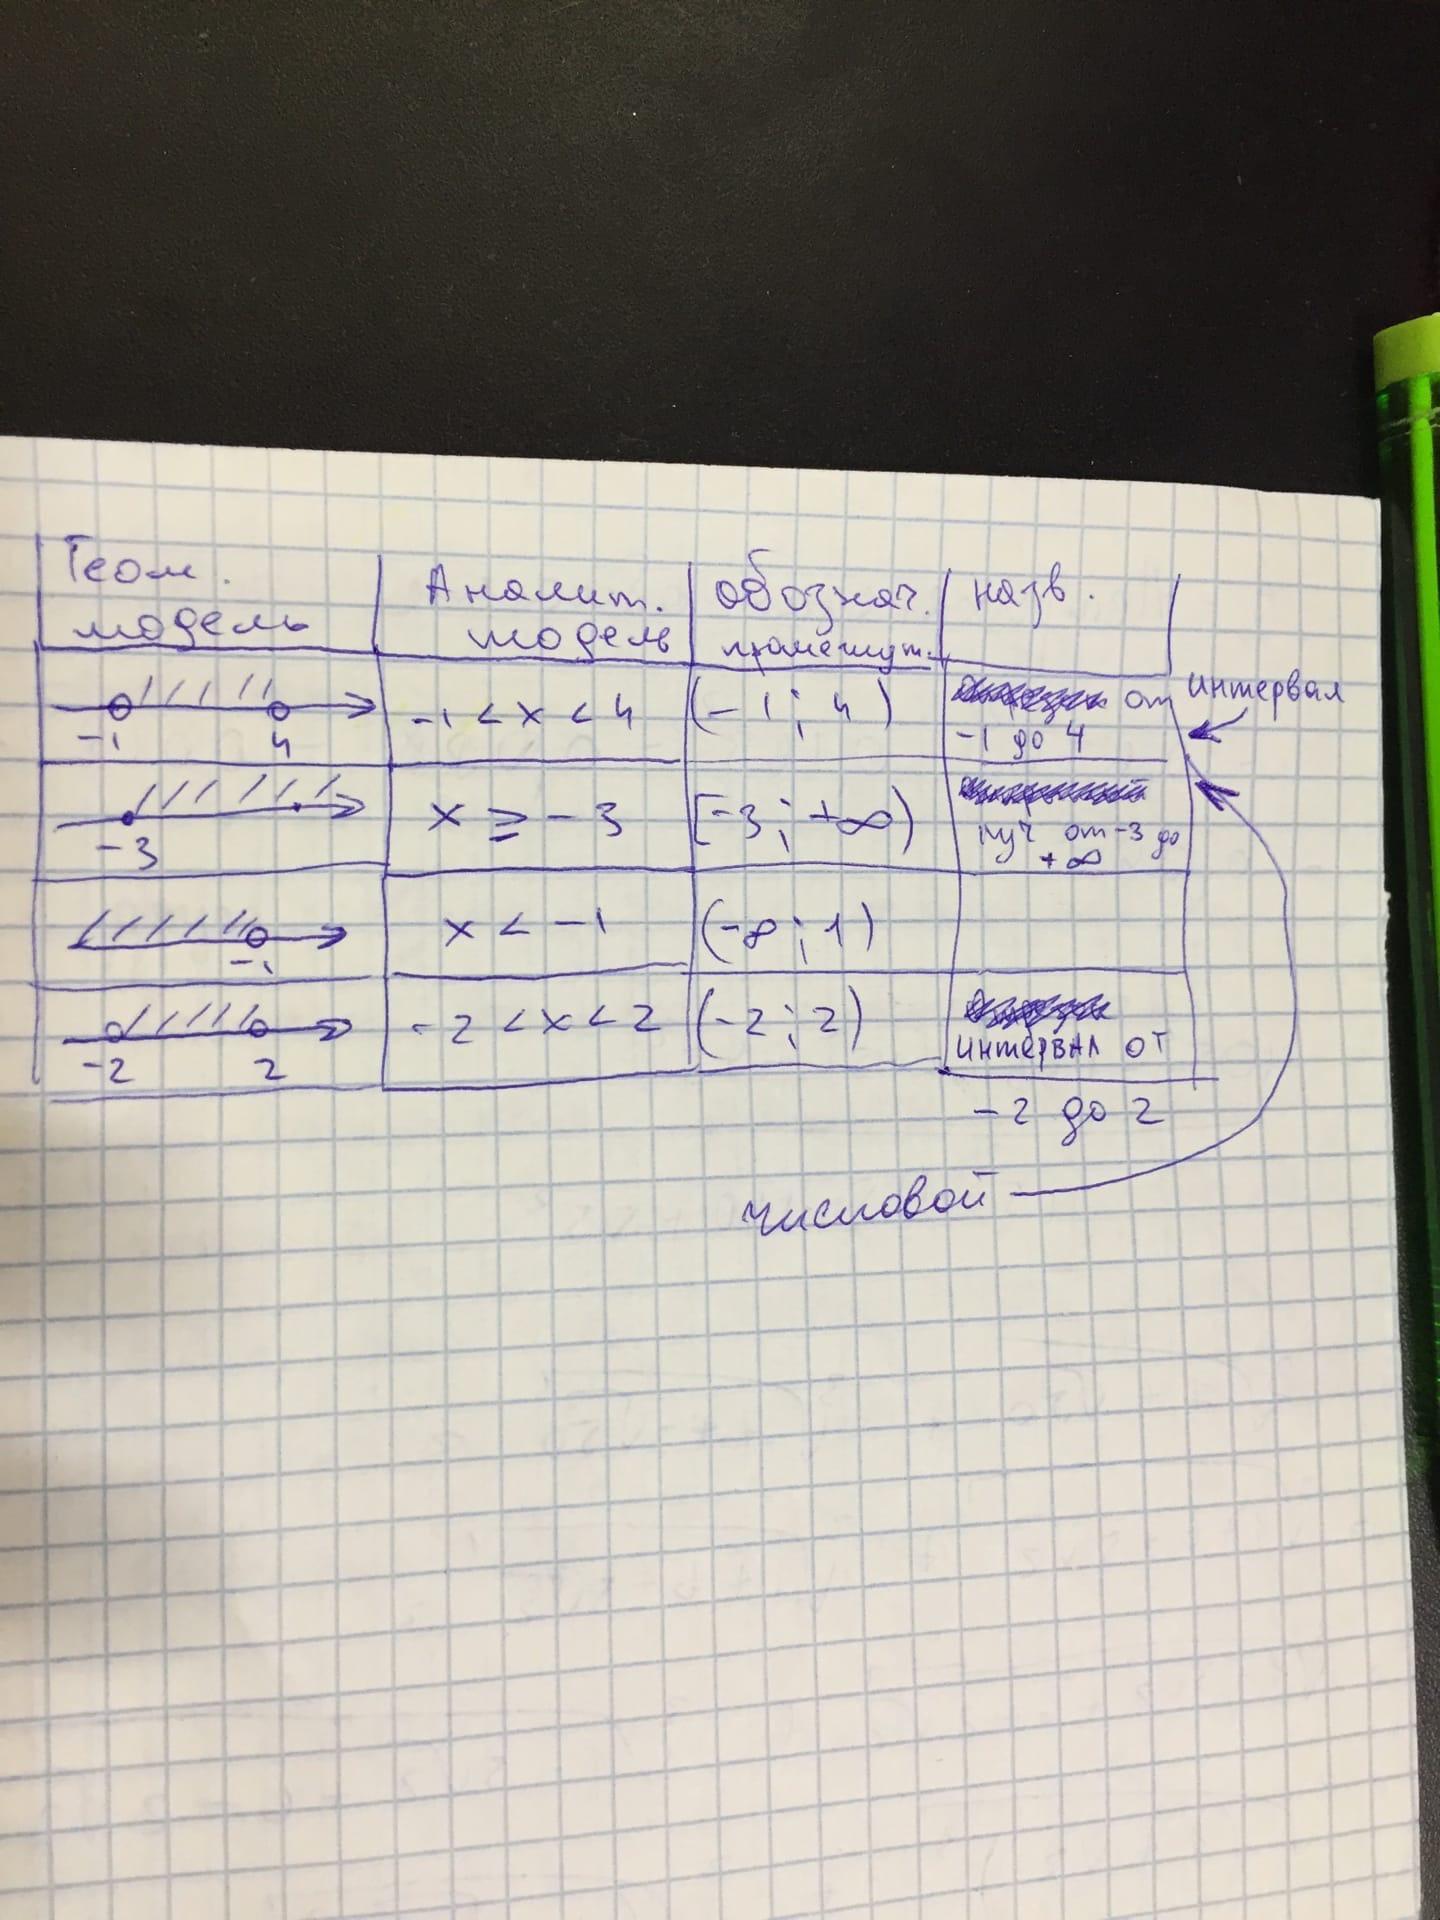 Геом.
модель
Аналит.
модель
обознач.
промежут.
назв.
-1
4
-1 < x < 4
(-1; 4)
от
-1 до 4
интервал
-3
x ≥ -3
[-3; +∞)
луч от -3 до
+∞
-1
x < -1
(-∞; 1)
-2
2
-2 < x < 2
(-2; 2)
интервал от
-2 до 2
числовой